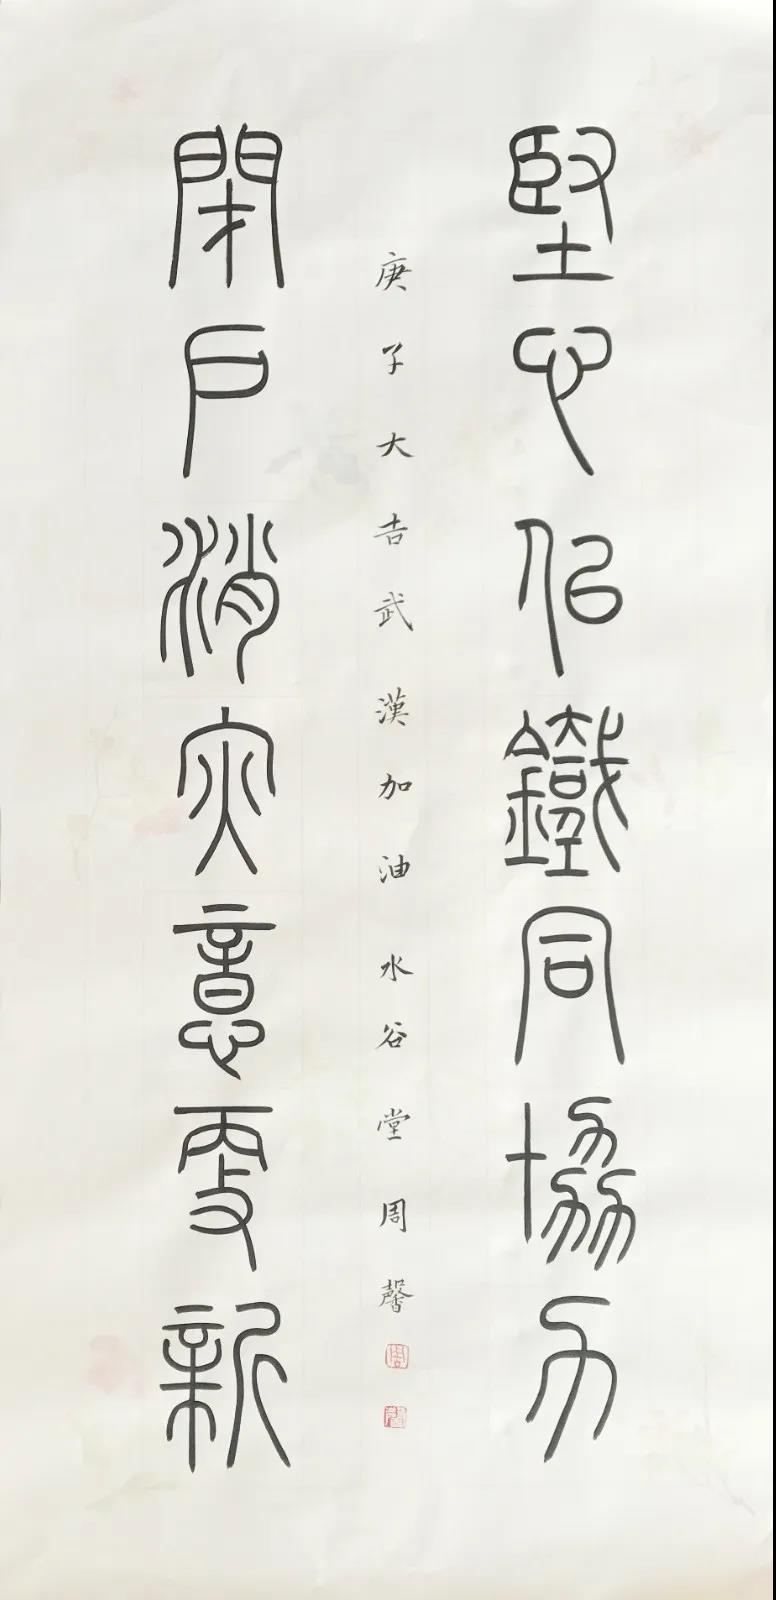 堅心似鐵同協力
閉戶消灾意更新
庚子大吉武漢加油水谷堂周馨